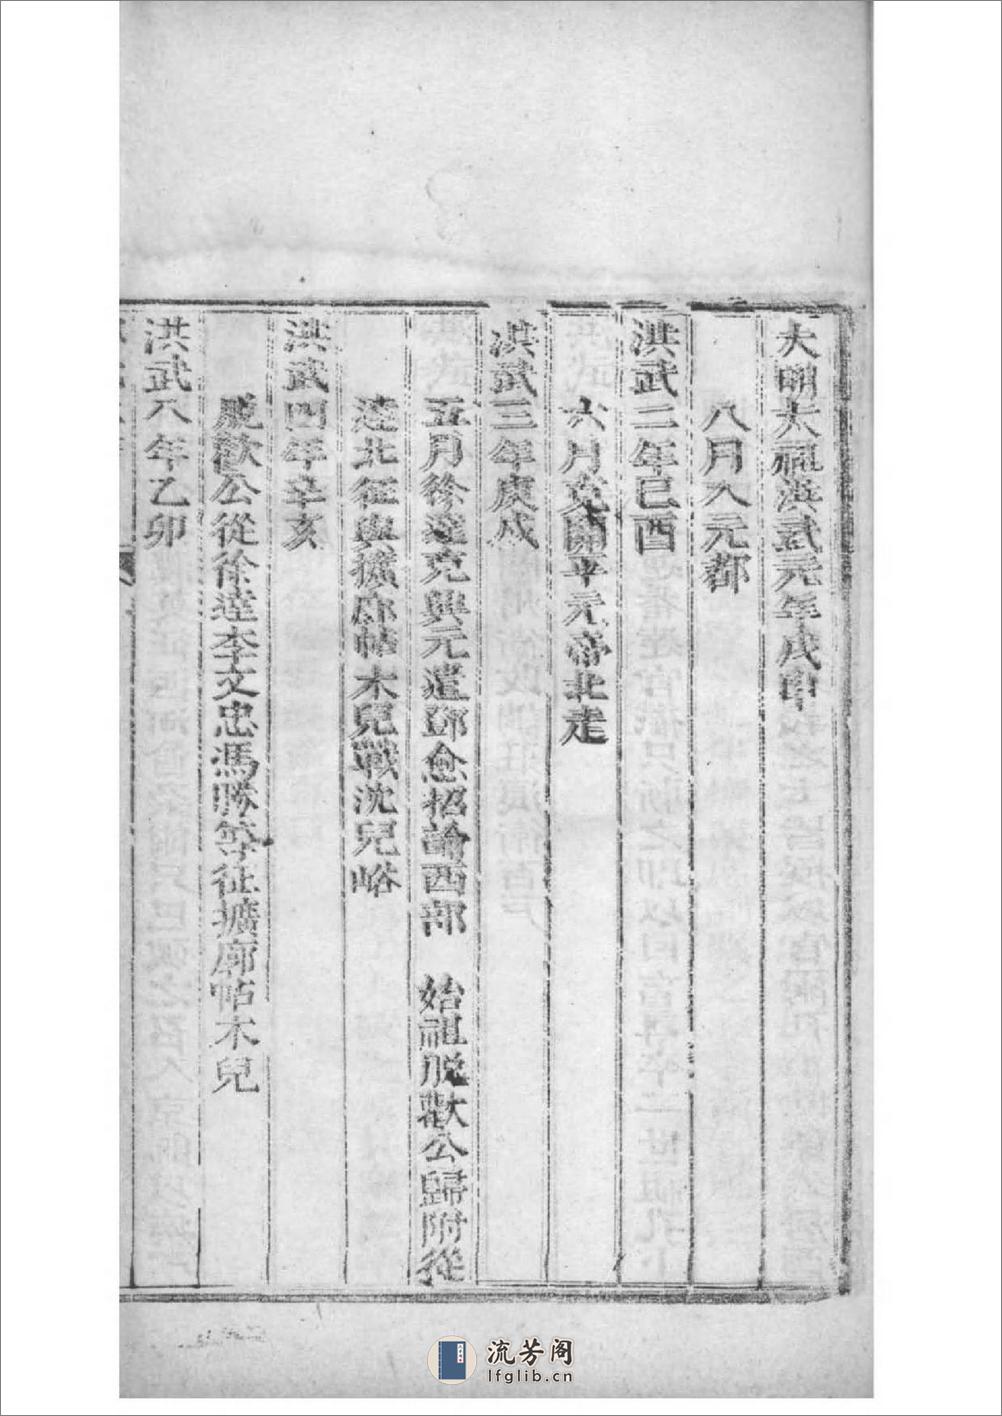 大明太祖洪武元年戊申
八月入元都
洪武二年己酉
六月克開平元帝北走
洪武三年庚戌
五月徐達克興元遣鄧愈招諭西部　始祖脫歡公歸附從
達北征與擴廓帖木兒戰沈兒峪
洪武四年辛亥
脫歡公從徐達李文忠馮勝等征擴廓帖木兒
洪武八年乙卯
流芳阁
lfglib.cn